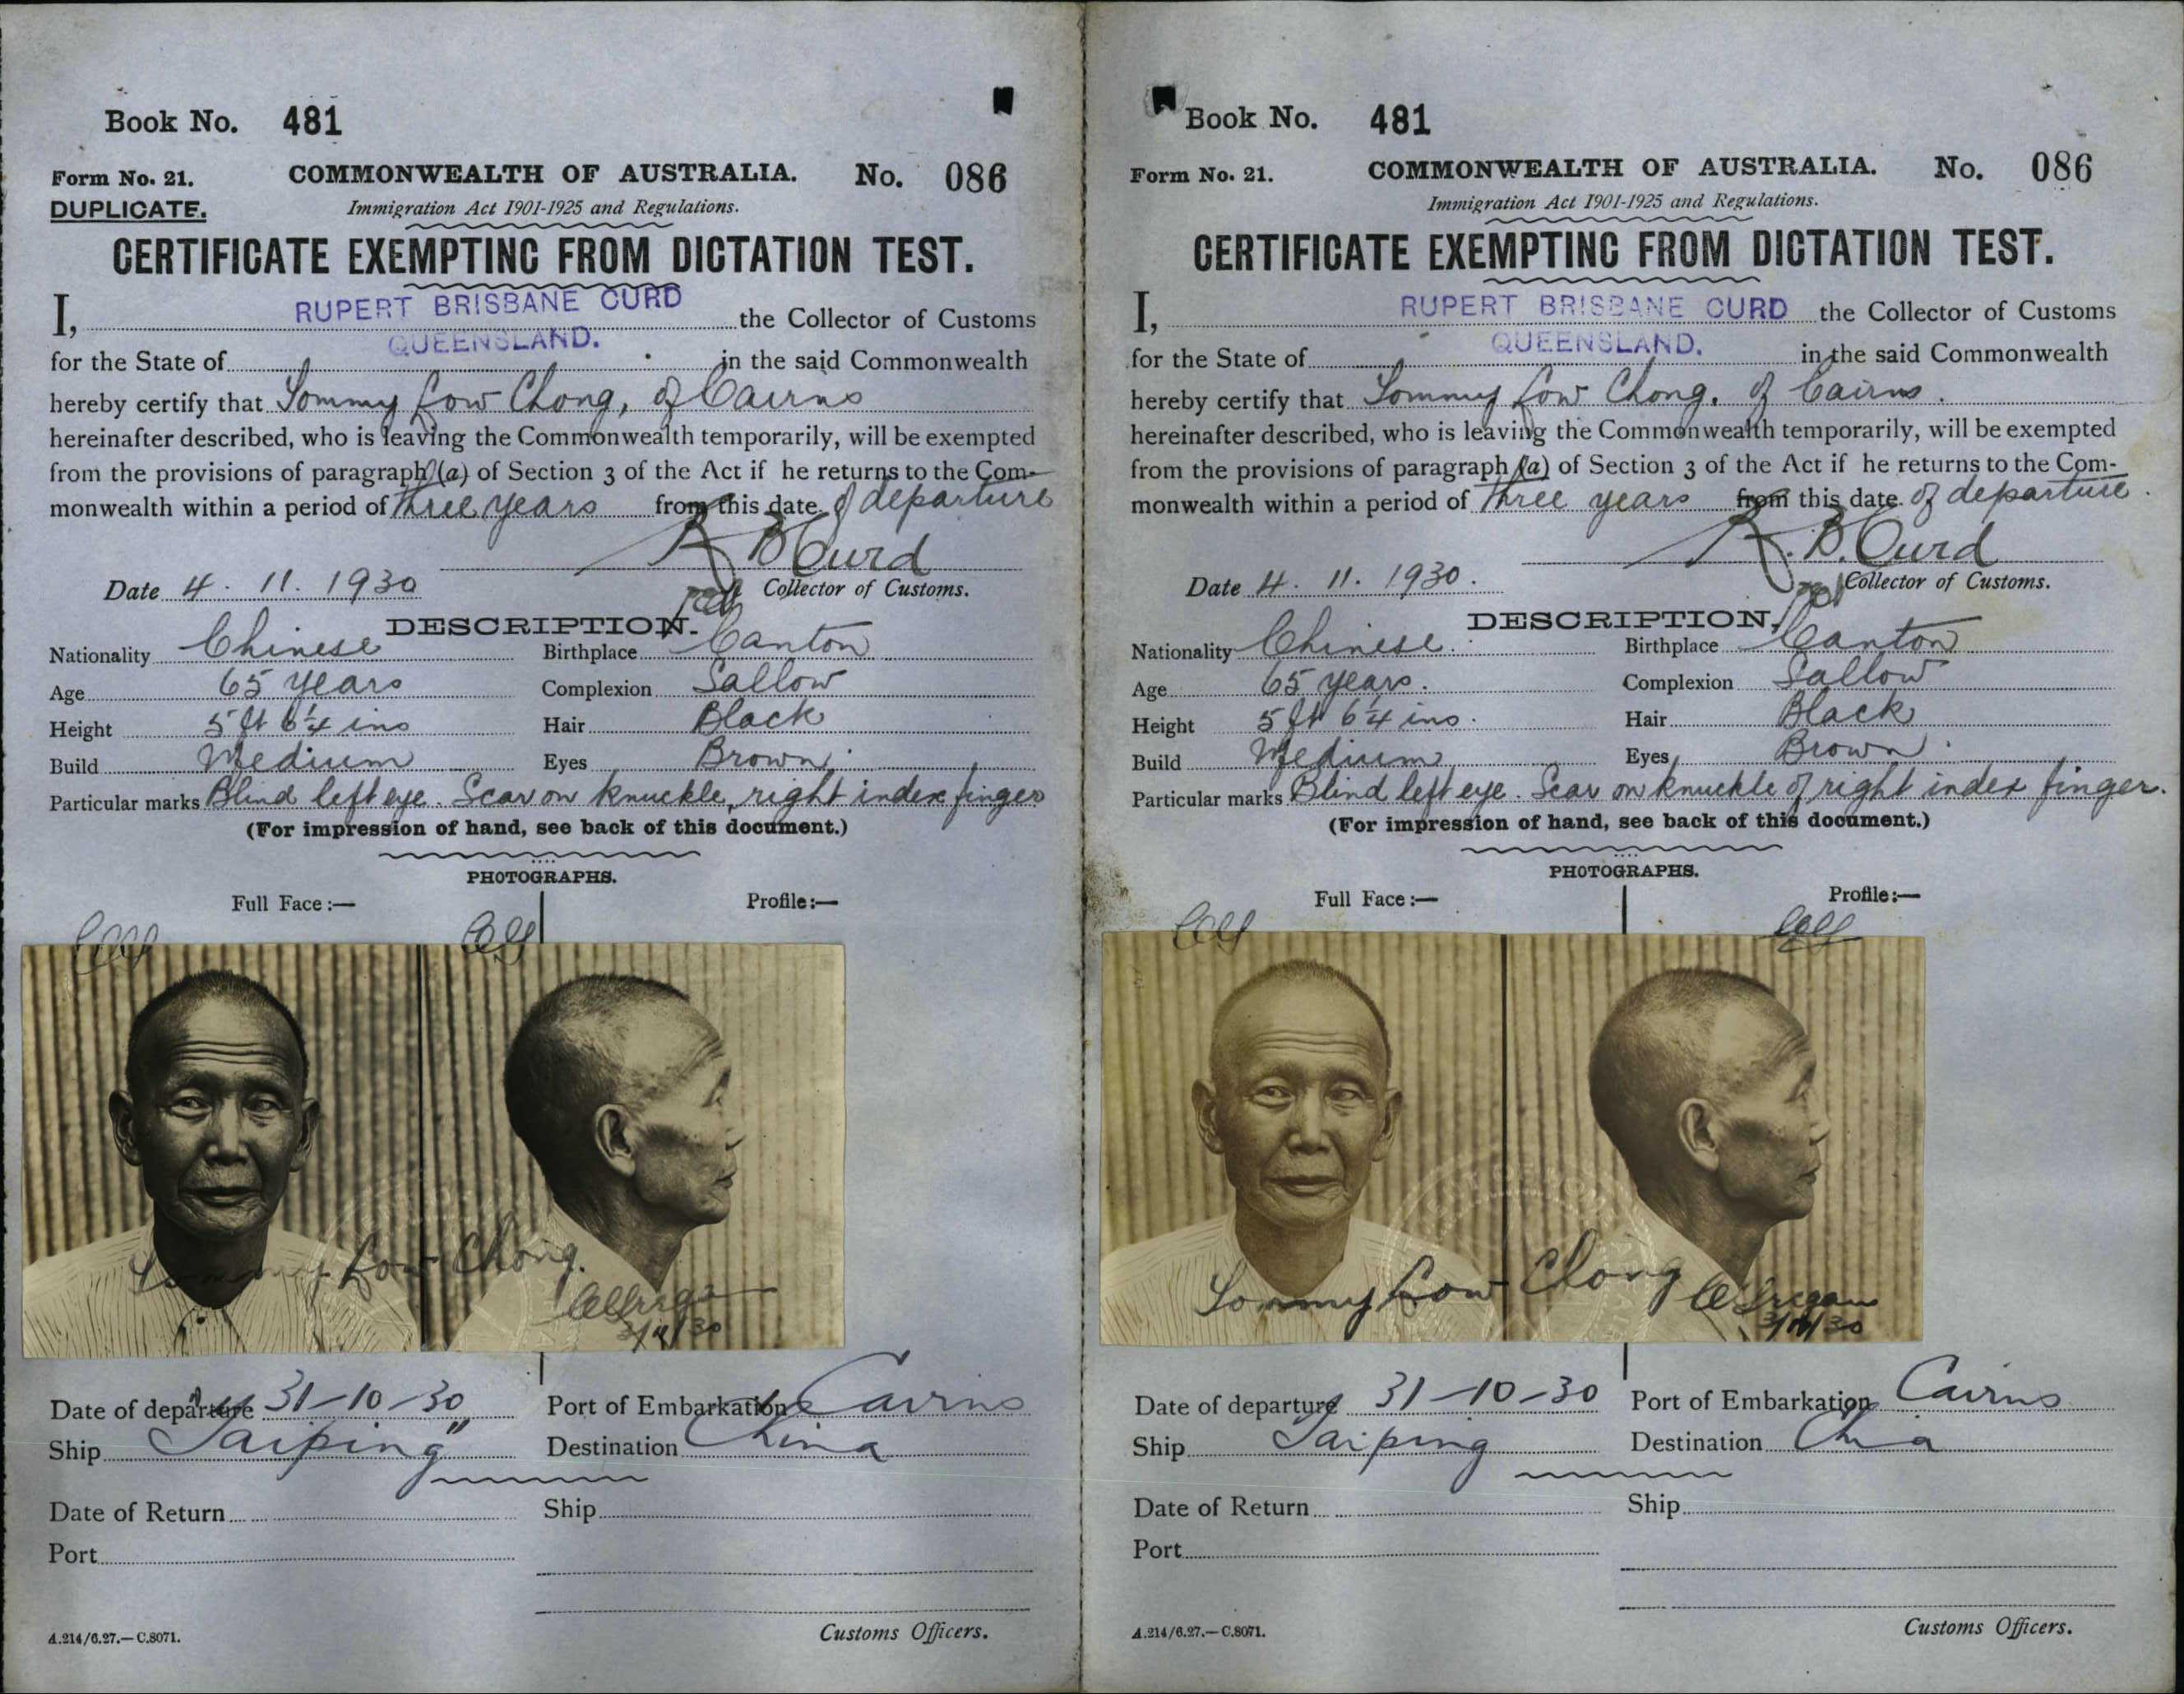 Book No. 481
Form No. 21.
COMMONWEALTH OF AUSTRALIA. No. 086
DUPLICATE.
Immigration Act 1901-1925 and Regulations.
CERTIFICATE EXEMPTING FROM DICTATION TEST.
RUPERT BRISBANE CURD
I, the Collector of Customs
QUEENSLAND.
for the State of in the said Commonwealth
hereby certify that Tommy Low Chong, of Cairns
hereinafter described, who is leaving the Commonwealth temporarily, will be exempted
from the provisions of paragraph (a) of Section 3 of the Act if he returns to the Com-
monwealth within a period of three years from this date of departure
R B Curd
Date 4. 11. 1930 Collector of Customs.
DESCRIPTION.
Nationality Chinese Birthplace Canton
Age 65 years Complexion Sallow
Height 5 ft 6 1/4 ins Hair Black
Build Medium Eyes Brown.
Particular marks Blind left eye. Scar on knuckle, right index finger
(For impression of hand, see back of this document.)
PHOTOGRAPHS.
Full Face:— Profile:—
Tommy Low Chong.
3/11/30
Date of departure 31-10-30 Port of Embarkation Cairns
Ship "Taiping" Destination China
Date of Return Ship
Port
A.214/6.27.—C.8071. Customs Officers.
Book No. 481
Form No. 21.
COMMONWEALTH OF AUSTRALIA. No. 086
Immigration Act 1901-1925 and Regulations.
CERTIFICATE EXEMPTING FROM DICTATION TEST.
RUPERT BRISBANE CURD
I, the Collector of Customs
QUEENSLAND.
for the State of in the said Commonwealth
hereby certify that Tommy Low Chong. of Cairns.
hereinafter described, who is leaving the Commonwealth temporarily, will be exempted
from the provisions of paragraph (a) of Section 3 of the Act if he returns to the Com-
monwealth within a period of three years from this date of departure.
R. B. Curd
Date 4. 11. 1930. Collector of Customs.
DESCRIPTION.
Nationality Chinese. Birthplace Canton
Age 65 years. Complexion Sallow
Height 5 ft 6 1/4 ins. Hair Black
Build Medium Eyes Brown.
Particular marks Blind left eye. Scar on knuckle of right index finger.
(For impression of hand, see back of this document.)
PHOTOGRAPHS.
Full Face:— Profile:—
Tommy Low Chong
3/11/30
Date of departure 31-10-30 Port of Embarkation Cairns
Ship Taiping Destination China
Date of Return Ship
Port
A.214/6.27.—C.8071. Customs Officers.